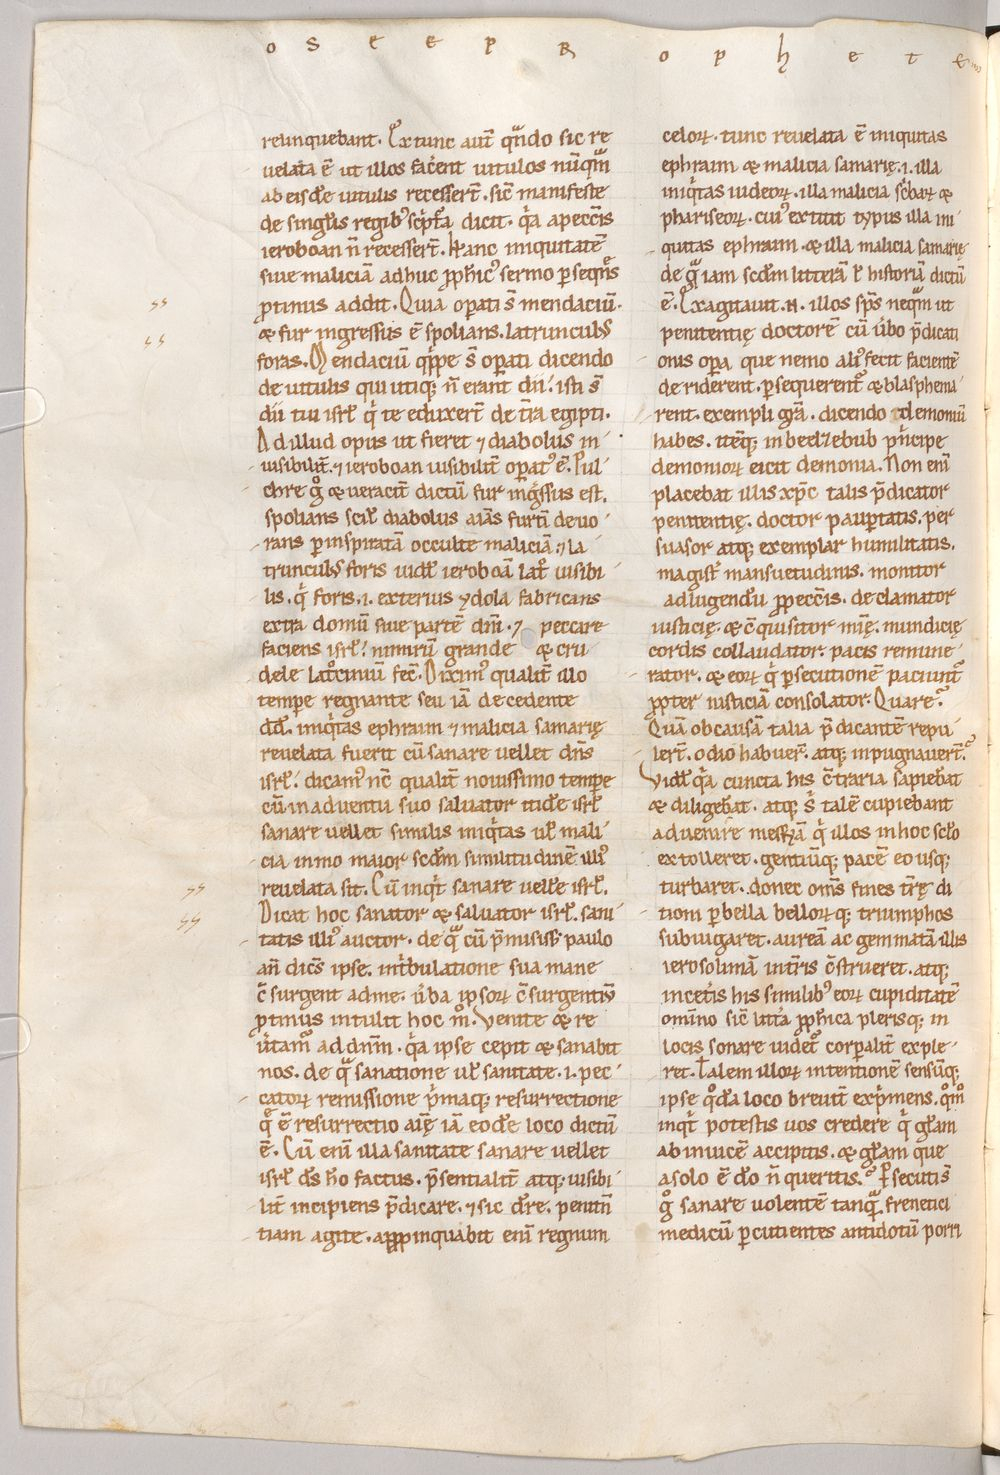 O S E E P R O P H E T E
relinquebant. Ex tunc aut̄ qͣndo sic re
uelata ē ut illos facerent uitulos nūqͣm
ab eisdē uitulis recesser̄t. sic̄ manifeste
de singłis regib' sc̓ptͣa dicit. qͥa a pecc̄is
ieroboan n̄ recesser̄t. Hanc iniquitatē
siue maliciā adhuc ꝓph̄ic' sermo ꝑseqn̄s
ꝓtinus addit. Quia oꝑati s̄ mendaciū.
& fur ingressus ē spolians. latruncul'
foras. Mendaciū qͥppe s̄ oꝑati dicendo
de uitulis qui utiq; n̄ erant dii. isti s̄
dii tui isrł qͥ te eduxer̄t de tr̄a egipti.
Ad illud opus ut fieret ⁊ diabolus in
uisibilit̄. ⁊ ieroboan uisibilit̄ oꝑat' ē. Pul
chre gͦ & ueracit̄ dictū fur ingͥssus est.
spolians scił diabolus aīas furti deuo
rans ꝑ inspiratā occulte maliciā. ⁊ la
truncul' foris uidł ieroboā latͦ uisibi
lis. qͥ foris .i. exterius ydola fabricans
extra domū siue partē dn̄i. ⁊ peccare
faciens isrł. nimirū grande & cru
dele latͦciniū fec̄. Diximͥ qualit̄ illo
tempe regnante seu iā decedente
dd̄. iniqͥtas ephraim ⁊ malicia samarię
reuelata fuerit cū sanare uellet dn̄s
isrł. dicam' nc̄ qualit̄ nouissimo tempe
cū in aduentu suo saluator itidē isrł
sanare uellet similis iniqͥtas uł mali
cia inmo maior scdm̄ similitudinē illi'
reuelata sit. Cū inqͥt sanare uellē isrł.
Dicat hoc sanator & saluator isrł. sani
tatis illi' auctor. de qͣ cū p̄misiss; paulo
an̄ dic̄s ipse. in tͥbulatione sua mane
c̄surgent ad me. ūba ipsoꝝ c̄surgentiū
ꝓtinus intulit hoc mͦ. Venite & re
ūtamͥ ad dn̄m. qͥa ipse cepit & sanabit
nos. de qͣ sanatione uł sanitate .i. pec
catoꝝ remissione pͥmaq; resurrectione
qͣ ē resurrectio aīę iā eodē loco dictū
ē. Cū enī illa sanitate sanare uellet
isrł ds̄ ho factus. p̄sentialit̄ atq; uisibi
lit̄ incipiens p̄dicare. ⁊ sic dr̄e. penitn̄
tiam agite. appꝓpinquabit enī regnum
celoꝝ. tunc reuelata ē iniquitas
ephraim & malicia samarię .i. illa
iniqͥtas iudeoꝝ. illa malicia sc̓baꝝ &
phariseoꝝ. cui' extitit typus illa ini
quitas ephraim. & illa malicia samarię
de qͣ iam scdm̄ litterā ł historiā dictū
ē. Exagitauit .n. illos sps̄ neqͣm ut
penitentię doctorē cū ūbo p̄dicati
onis oꝑa que nemo ali' fecit facientē
deriderent. ꝑsequerent̄ & blasphema
rent. exempli grā. dicendo demoniū
habes. itēq; in beelzebub pͥncipe
demonioꝝ eicit demonia. Non enī
placebat illis xp̄c talis p̄dicator
penitentię. doctor pauꝑtatis. per
suasor atq; exemplar humilitatis.
magist̄ mansuetudinis. monitor
ad lugendū ꝓ pecc̄is. declamator
iusticię. & c̄quisitor mīę. mundicię
cordis collaudator. pacis remune
rator. & eoꝝ qͥ ꝑsecutionē paciunt̄
ꝓpter iusticiā consolator. Quare?
Quā ob causā talia p̄dicantē repu
ler̄t. odio habuer̄. atq; inpugnauer̄t?
Vidł qͥa cuncta his c̄traria sapiebāt
& diligebāt. atq; s̄ talē cupiebant
aduenire messyā qͥ illos in hoc scło
extolleret. gentiūq; pacē eo usq;
turbaret. donec om̄s fines tr̄ę di
tioni ꝑ bella belloꝝq; triumphos
subiugaret. aureā ac gemmatā illis
ierosolimā in tr̄is c̄strueret. atq;
in cet̄is his similib' eoꝝ cupiditatē
omīno sic̄ litt̄a ꝓph̄ica plerisq; in
locis sonare uidet̄ corꝑalit̄ exple
ret. Talem illoꝝ intentionē sensūq;
ipse qͦdā loco breuit̄ expͥmens. qͦmͦ
inqͥt potestis uos credere qͥ głam
ab inuicē accipitis. & głam que
a solo ē dō n̄ queritis? Persecuti s̄
gͦ sanare uolentē tanqͣ frenetici
medicū ꝑcutientes antidotū porri